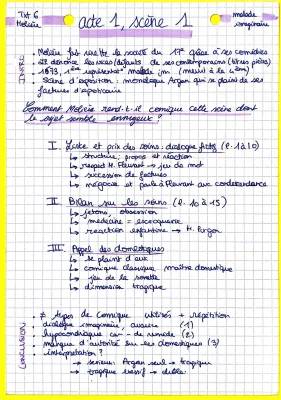 Txt 6
Molière
acte 1, scène 1
malade
imaginaire
INTRO
• Molière fait la société du 17e grâce à ses comédies
• il dénonce les vices/défauts de ses contemporains (titres pièces)
• 1673, 1ère représentation malade im (meurt à la 4ème)
• Scène d'exposition : monologue Argan qui se plaint de ses
factures d'apothicaire
Comment Molière rend-t-il comique cette scène dont
le sujet semble ennuyeux ?
I. Liste et prix des soins : dialogue fictif (l. 1 à 10)
↳ structure : propos et réaction
↳ respect M. Fleurant → jeu de mot
↳ succession de factures
↳ négocie et parle à Fleurant avec condescendance
II. Bilan sur les soins (l. 10 à 15)
↳ jetons, obsession
↳ médecine = escroquerie
↳ réaction enfantine → M. Purgon
III. Appel des domestiques
↳ se plaint d'eux
↳ comique classique, maître domestique
↳ jeu de la sonnette
↳ dimension tragique
CONCLUSION
• ≠ types de comique utilisés + répétition
• dialogue imaginaire, (1)
• hypocondriaque de remède (2)
• manque d'autorité sur ses domestiques (3)
• interprétation ?
→ sérieux : Argan seul → tragique
→ tragique →